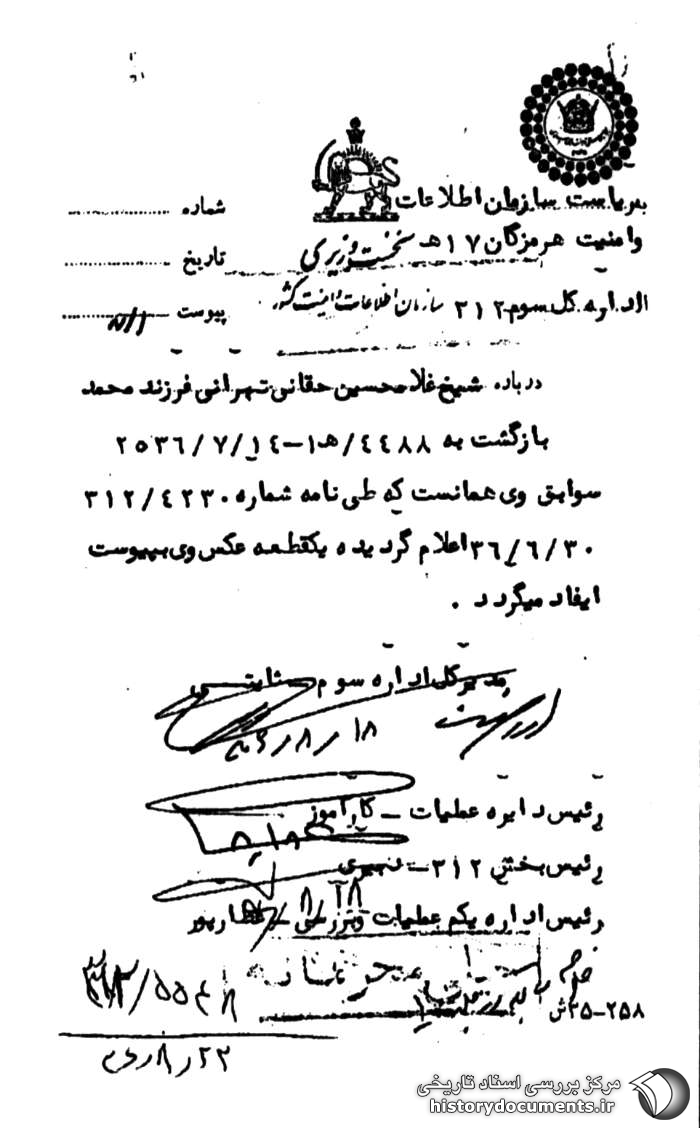 بریاست سازمان اطلاعات
وامنیت هرمزگان ۱۷ هـ
نخست وزیری
سازمان اطلاعات و امنیت کشور
شماره
تاریخ
پیوست
اداره کل سوم ۳۱۲
درباره شیخ غلامحسین حقانی تهرانی فرزند محمد
بازگشت به ۴۴۸۸/هـ۱-۱۴/۷/۲۵۳۶
سوابق وی همانست که طی نامه شماره ۳۱۲/۴۲۳۰
۳۶/۶/۳۰ اعلام گردیده یکقطعه عکس وی بپیوست
ایفاد میگردد .
مدیرکل اداره سوم ثابتی
۱۸/۸/
رئیس دایره عملیات ـ کارآموز
رئیس بخش ۳۱۲ ـ
رئیس اداره یکم عملیات و بررسی ـ عطارپور
۳۵-۲۵۸ش
مرکز بررسی اسناد تاریخی
historydocuments.ir